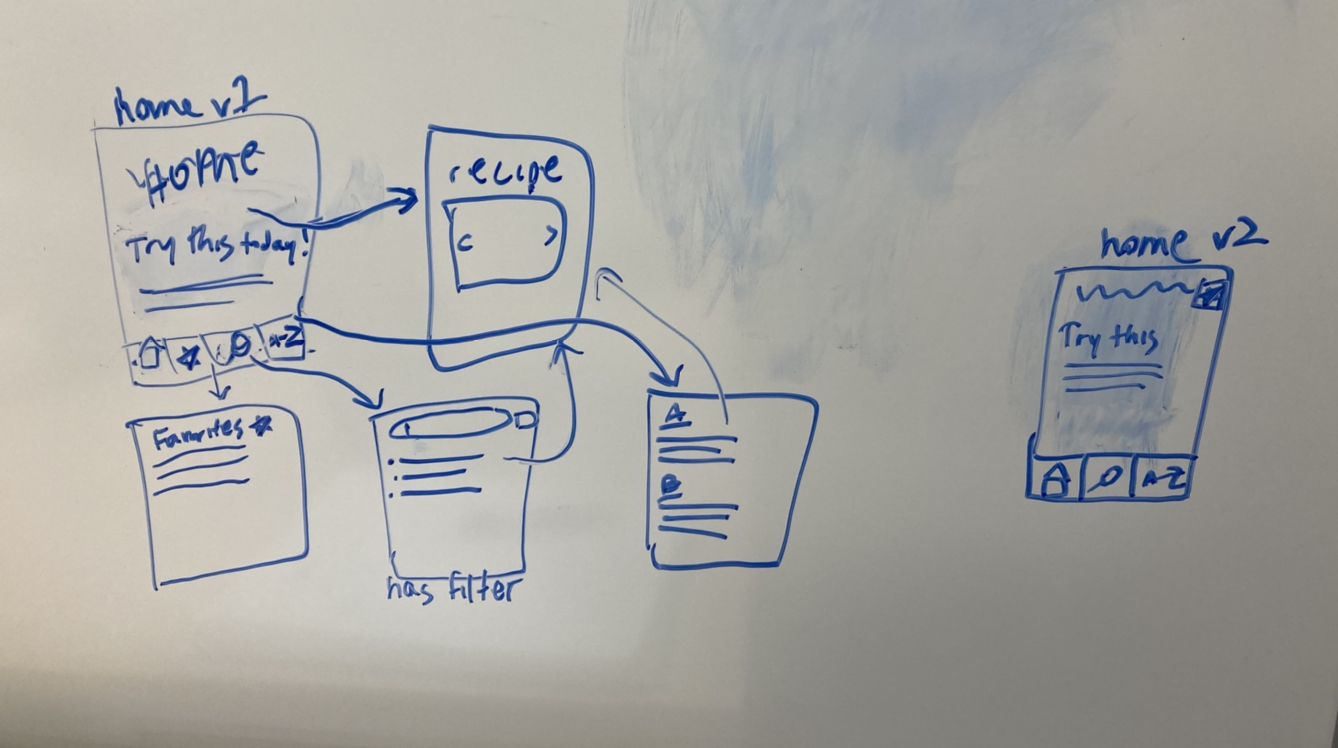 home v1
HOME
Try this today!
A-Z
recipe
< >
Favorites
has filter
A
B
home v2
Try this
A-Z